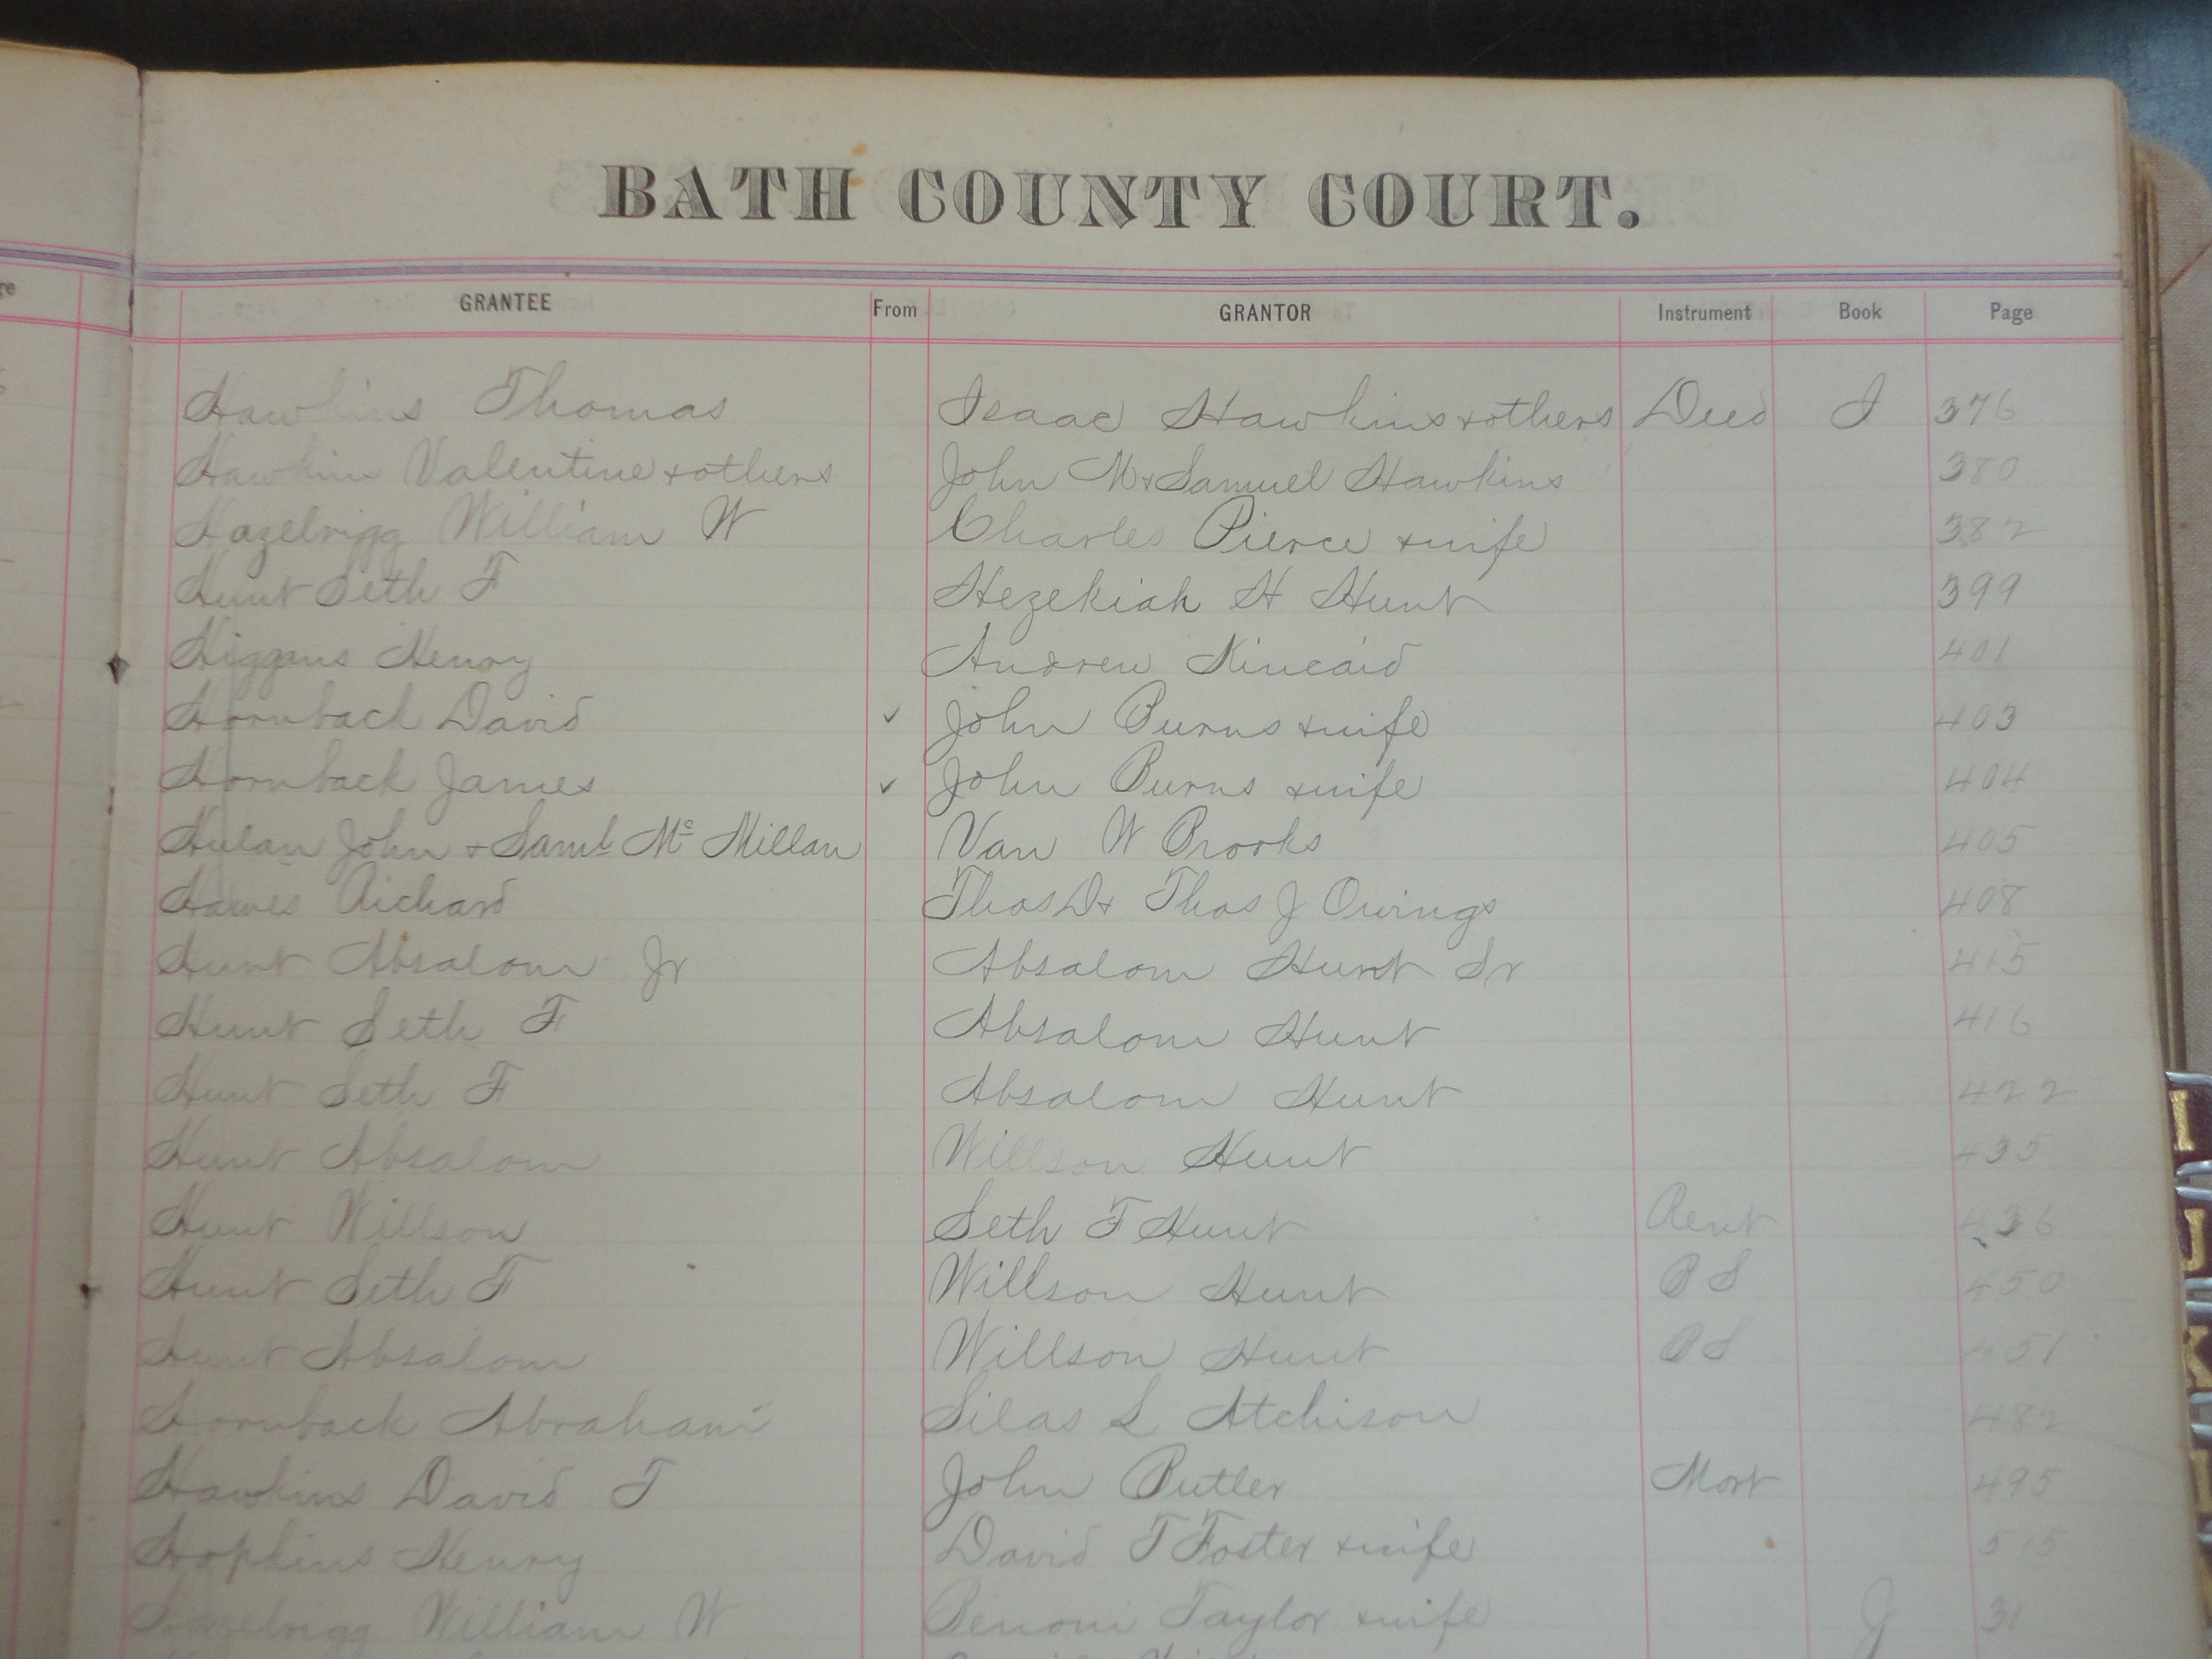 BATH COUNTY COURT.
GRANTEE From GRANTOR Instrument Book Page
Hawkins Thomas Isaac Hawkins & others Deed I 376
Hawkins Valentine & others John M & Samuel Hawkins 380
Hazelrigg William W Charles Pierce & wife 382
Hunt Seth F Hezekiah H Hunt 399
Higgans Henry Andrew Kincaid 401
Hornback David ✓ John Burns & wife 403
Hornback James ✓ John Burns & wife 404
Hulan John & Saml Mc Millan Van W Brooks 405
Hawes Richard Thos D & Thos J Owings 408
Hunt Absalom Jr Absalom Hunt Sr 415
Hunt Seth F Absalom Hunt 416
Hunt Seth F Absalom Hunt 422
Hunt Absalom Willson Hunt 435
Hunt Willson Seth F Hunt Rent 436
Hunt Seth F Willson Hunt B S 450
Hunt Absalom Willson Hunt B S 451
Hornback Abraham Silas L Atchison 482
Hawkins David T John Butler Mort 495
Hopkins Henry David T Foster & wife 515
Hazelrigg William W Benoni Taylor & wife J 31
I
J
K